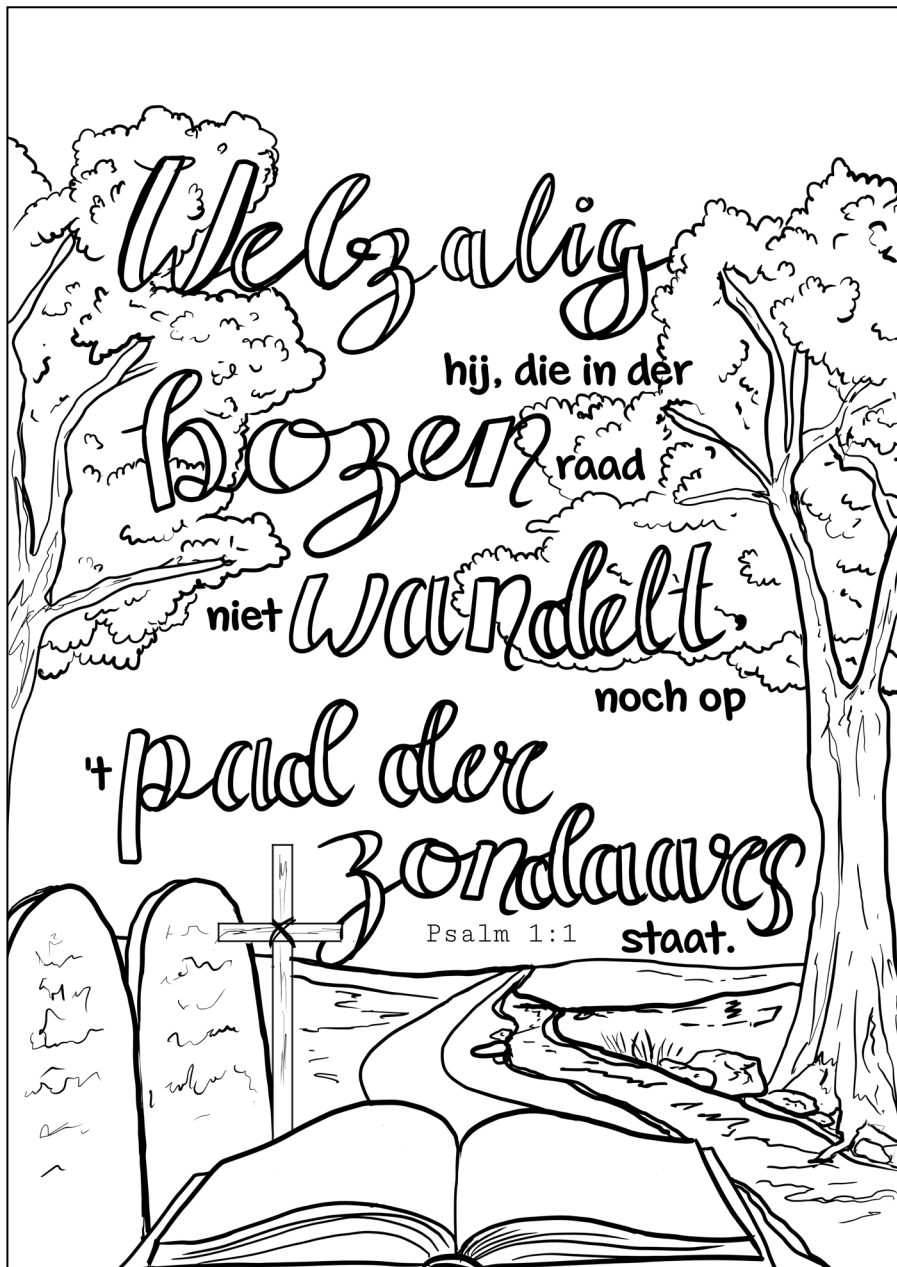 Welzalig
hij, die in der
bozen raad
niet wandelt,
noch op
't pad der
zondaars
Psalm 1:1 staat.